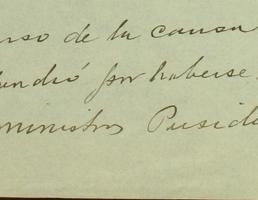 urso de la causa
fundió por haberse
ministros Preside